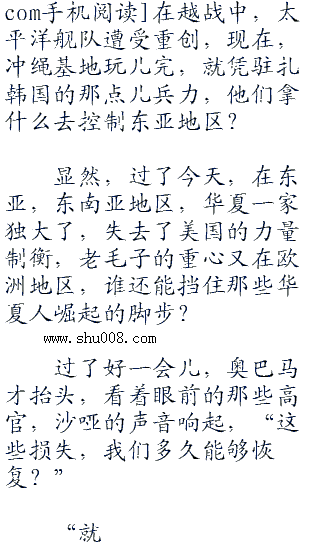 com手机阅读]在越战中，太
平洋舰队遭受重创，现在，
冲绳基地玩儿完，就凭驻扎
韩国的那点儿兵力，他们拿
什么去控制东亚地区？
显然，过了今天，在东
亚，东南亚地区，华夏一家
独大了，失去了美国的力量
制衡，老毛子的重心又在欧
洲地区，谁还能挡住那些华
夏人崛起的脚步？
www.shu008.com
过了好一会儿，奥巴马
才抬头，看着眼前的那些高
官，沙哑的声音响起，“这
些损失，我们多久能够恢
复？”
“就